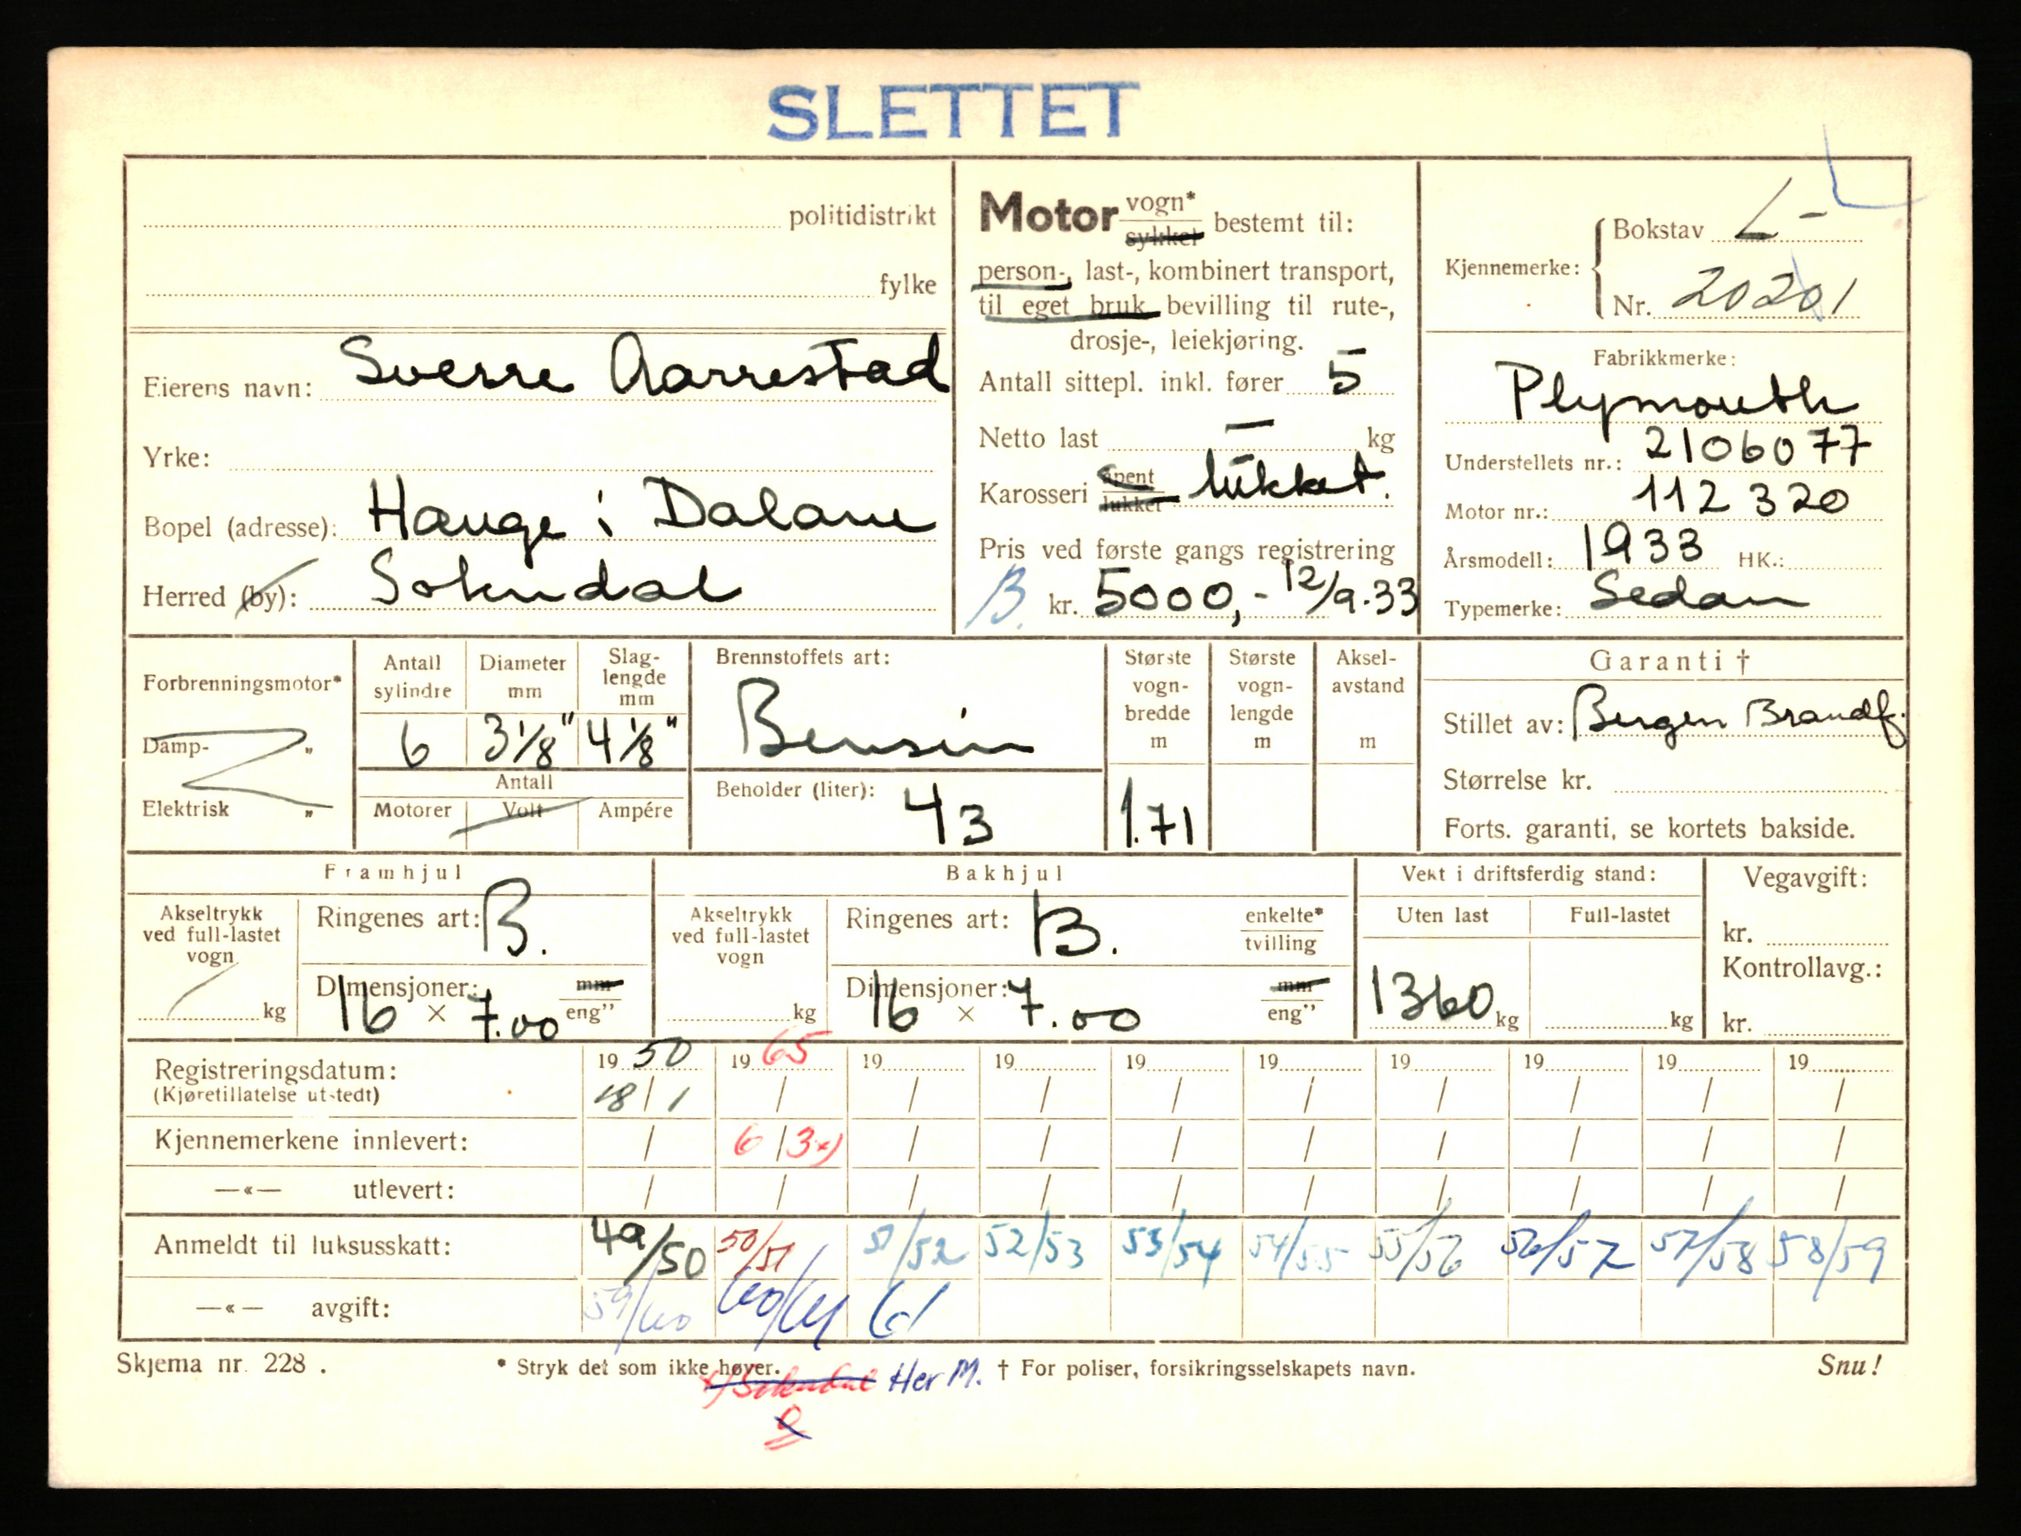 SLETTET
politidistrikt
fylke
Eierens navn: Sverre Aarrestad
Yrke:
Bopel (adresse): Hauge i Dalane
Herred (by): Sokndal
Motor vogn* sykkel bestemt til:
person-, last-, kombinert transport,
til eget bruk bevilling til rute-,
drosje-, leiekjøring.
Antall sittepl. inkl. fører 5
Netto last — kg
Karosseri åpent lukket lukket.
Pris ved første gangs registrering
B. kr. 5000,- 12/9.33
Kjennemerke: Bokstav L-
Nr. 20201
Fabrikkmerke:
Plymouth
Understellets nr.: 2106077
Motor nr.: 112320
Årsmodell: 1933 HK.:
Typemerke: Sedan
Forbrenningsmotor*
Damp- „
Elektrisk „
Antall sylindre 6
Diameter mm 3 1/8"
Slag-lengde mm 4 1/8"
Antall
Motorer Volt Ampére
Brennstoffets art:
Bensin
Beholder (liter): 43
Største vogn-bredde m 1.71
Største vogn-lengde m
Aksel-avstand m
Garanti †
Stillet av: Bergen Brandf.
Størrelse kr.
Forts. garanti, se kortets bakside.
Framhjul
Akseltrykk ved full-lastet vogn kg
Ringenes art: B.
Dimensjoner: mm
16 × 7.00 eng"
Bakhjul
Akseltrykk ved full-lastet vogn kg
Ringenes art: B. enkelte* tvilling
Dimensjoner: mm
16 × 7.00 eng"
Vekt i driftsferdig stand:
Uten last Full-lastet
1360 kg kg
Vegavgift:
kr.
Kontrollavg.:
kr.
Registreringsdatum: 19 50 19 65 19 19 19 19 19 19 19 19
(Kjøretillatelse utstedt) 18/1 / / / / / / / / /
Kjennemerkene innlevert: / 6/3 x) / / / / / / / /
—«— utlevert: / / / / / / / / / /
Anmeldt til luksusskatt: 49/50 50/51 51/52 52/53 53/54 54/55 55/56 56/57 57/58 58/59
—«— avgift: 59/60 60/61 61
Skjema nr. 228. * Stryk det som ikke høver. † For poliser, forsikringsselskapets navn. Snu!
x) Sokndal Her M.